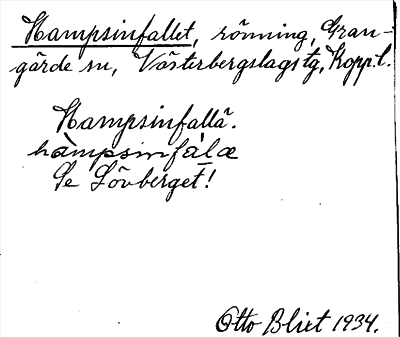 Hampsinfallet, rönning, Gran-
gärde sn, Västerbergslags tg, Kopp. l.
Hampsinfallä.
hàmpsinfálæ
Se Lövberget!
Otto Blixt 1934.